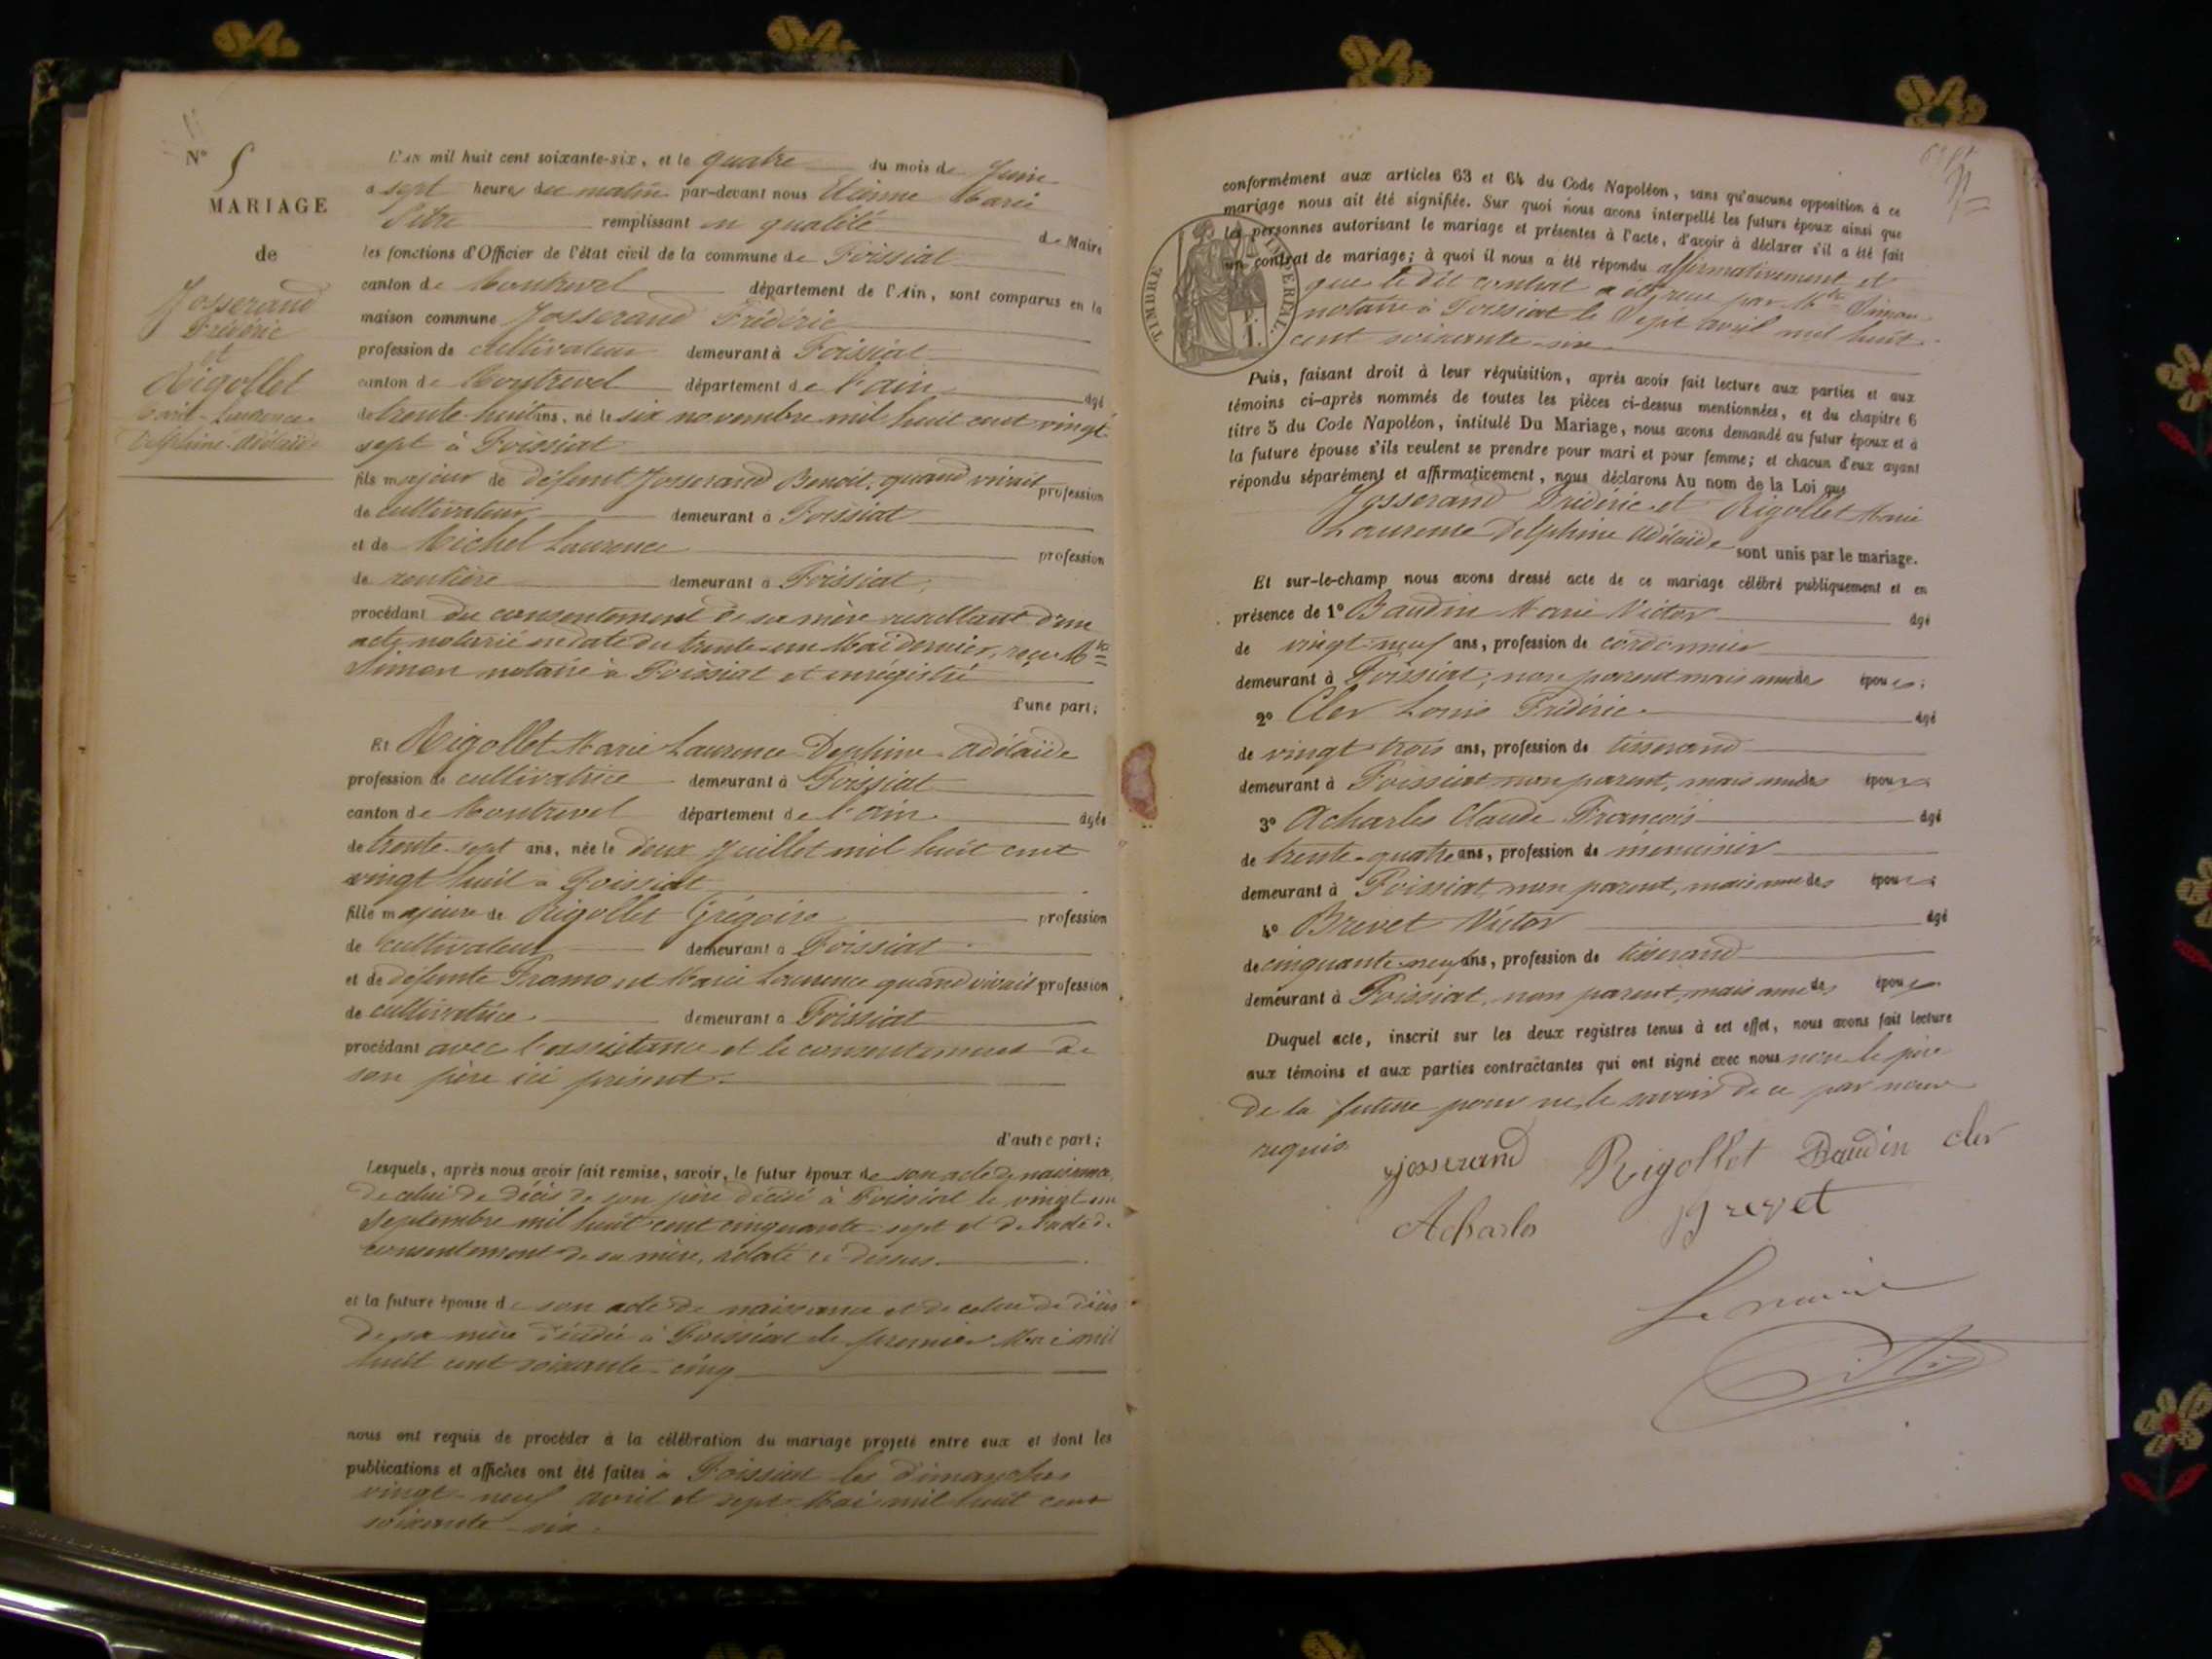 N° 5
MARIAGE
de
Josserand
Frédéric
et
Rigollet
Marie-Laurence
Delphine-Adélaïde
L'AN mil huit cent soixante-six, et le quatre du mois de Juin
à sept heures du matin par-devant nous Etienne Marie
remplissant en qualité de Maire
les fonctions d'Officier de l'état civil de la commune de Foissiat
canton de Montrevel département de l'Ain, sont comparus en la
maison commune Josserand Frédéric
profession de cultivateur demeurant à Foissiat
canton de Montrevel département de l'ain âgé
de trente-huit ans, né le six novembre mil huit cent vingt
sept à Foissiat
fils majeur de défunt Josserand Benoit, quand vivait profession
de cultivateur demeurant à Foissiat
et de Michel Laurence profession
de rentière demeurant à Foissiat,
procédant du consentement de sa mère resultant d'un
acte notarié en date du trente-un Mai dernier, reçu Mtre
Simon notaire à Foissiat et enrégistré
d'une part;
Et Rigollet Marie Laurence Delphine Adélaïde
profession de cultivatrice demeurant à Foissiat
canton de Montrevel département de l'ain âgée
de trente-sept ans, née le deux Juillet mil huit cent
vingt huit à Foissiat
fille majeure de Rigollet Grégoire profession
de cultivateur demeurant à Foissiat
et de défunte Marie Laurence quand vivait profession
de cultivatrice demeurant à Foissiat
procédant avec l'assistance et le consentement de
son père ici présent.
d'autre part;
Lesquels, après nous avoir fait remise, savoir, le futur époux de son acte de naissance,
de celui de décès de son père décédé à Foissiat le vingt-un
Septembre mil huit cent cinquante-sept et de l'acte de
consentement de sa mère, relaté ci-dessus.
et la future épouse de son acte de naissance et de celui de décès
de sa mère décédée à Foissiat le premier Mai mil
huit cent soixante-cinq
nous ont requis de procéder à la célébration du mariage projeté entre eux et dont les
publications et affiches ont été faites à Foissiat les dimanches
vingt-neuf avril et sept Mai mil huit cent
soixante-six.
conformément aux articles 63 et 64 du Code Napoléon, sans qu'aucune opposition à ce
mariage nous ait été signifiée. Sur quoi nous avons interpellé les futurs époux ainsi que
les personnes autorisant le mariage et présentes à l'acte, d'avoir à déclarer s'il a été fait
un contrat de mariage; à quoi il nous a été répondu affirmativement et
que le dit contrat a été reçu par Mtre Simon
notaire à Foissiat le Sept avril mil huit
cent soixante-six
TIMBRE IMPERIAL.
Puis, faisant droit à leur réquisition, après avoir fait lecture aux parties et aux
témoins ci-après nommés de toutes les pièces ci-dessus mentionnées, et du chapitre 6
titre 5 du Code Napoléon, intitulé Du Mariage, nous avons demandé au futur époux et à
la future épouse s'ils veulent se prendre pour mari et pour femme; et chacun d'eux ayant
répondu séparément et affirmativement, nous déclarons Au nom de la Loi que
Josserand Frédéric et Rigollet Marie
Laurence Delphine Adélaïde sont unis par le mariage.
Et sur-le-champ nous avons dressé acte de ce mariage célébré publiquement et en
présence de 1° Baudin Marie Victor âgé
de vingt-neuf ans, profession de cordonnier
demeurant à Foissiat, non parent mais ami des époux;
2° Cler Louis Frédéric âgé
de vingt trois ans, profession de tisserand
demeurant à Foissiat non parent, mais ami des époux
3° Acharles Claude François âgé
de trente-quatre ans, profession de menuisier
demeurant à Foissiat, non parent, mais ami des époux;
4° Brevet Victor âgé
de cinquante-neuf ans, profession de tisserand
demeurant à Foissiat, non parent, mais ami des époux
Duquel acte, inscrit sur les deux registres tenus à cet effet, nous avons fait lecture
aux témoins et aux parties contractantes qui ont signé avec nous non le père
de la future pour ne le savoir de ce par nous
requis.
Josserand Rigollet Baudin Cler
Acharles Brevet
Le maire